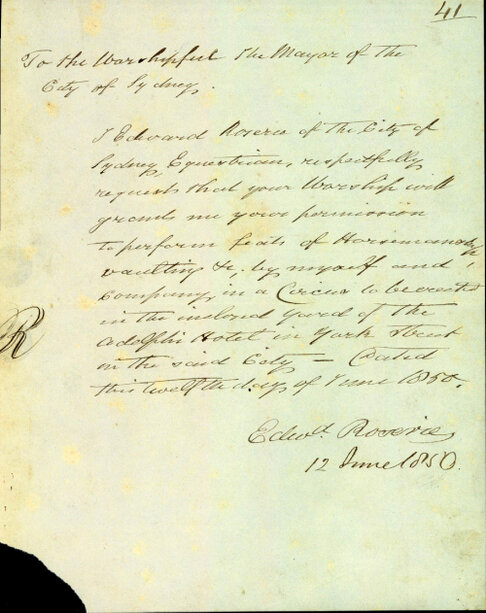 41
To the Worshipful the Mayor of the
City of Sydney.
I Edward Roseria of the City of
Sydney, Equestrian, respectfully
requests that your Worship will
grant me your permission
to perform feats of Horsemanship,
vaulting &c, by myself and
Company, in a Circus to be erected
in the inclosed yard of the
Adelphi Hotel in York Street
in the said City — Dated
this twelfth day of June 1850.
R
Edwd. Roseria
12 June 1850.